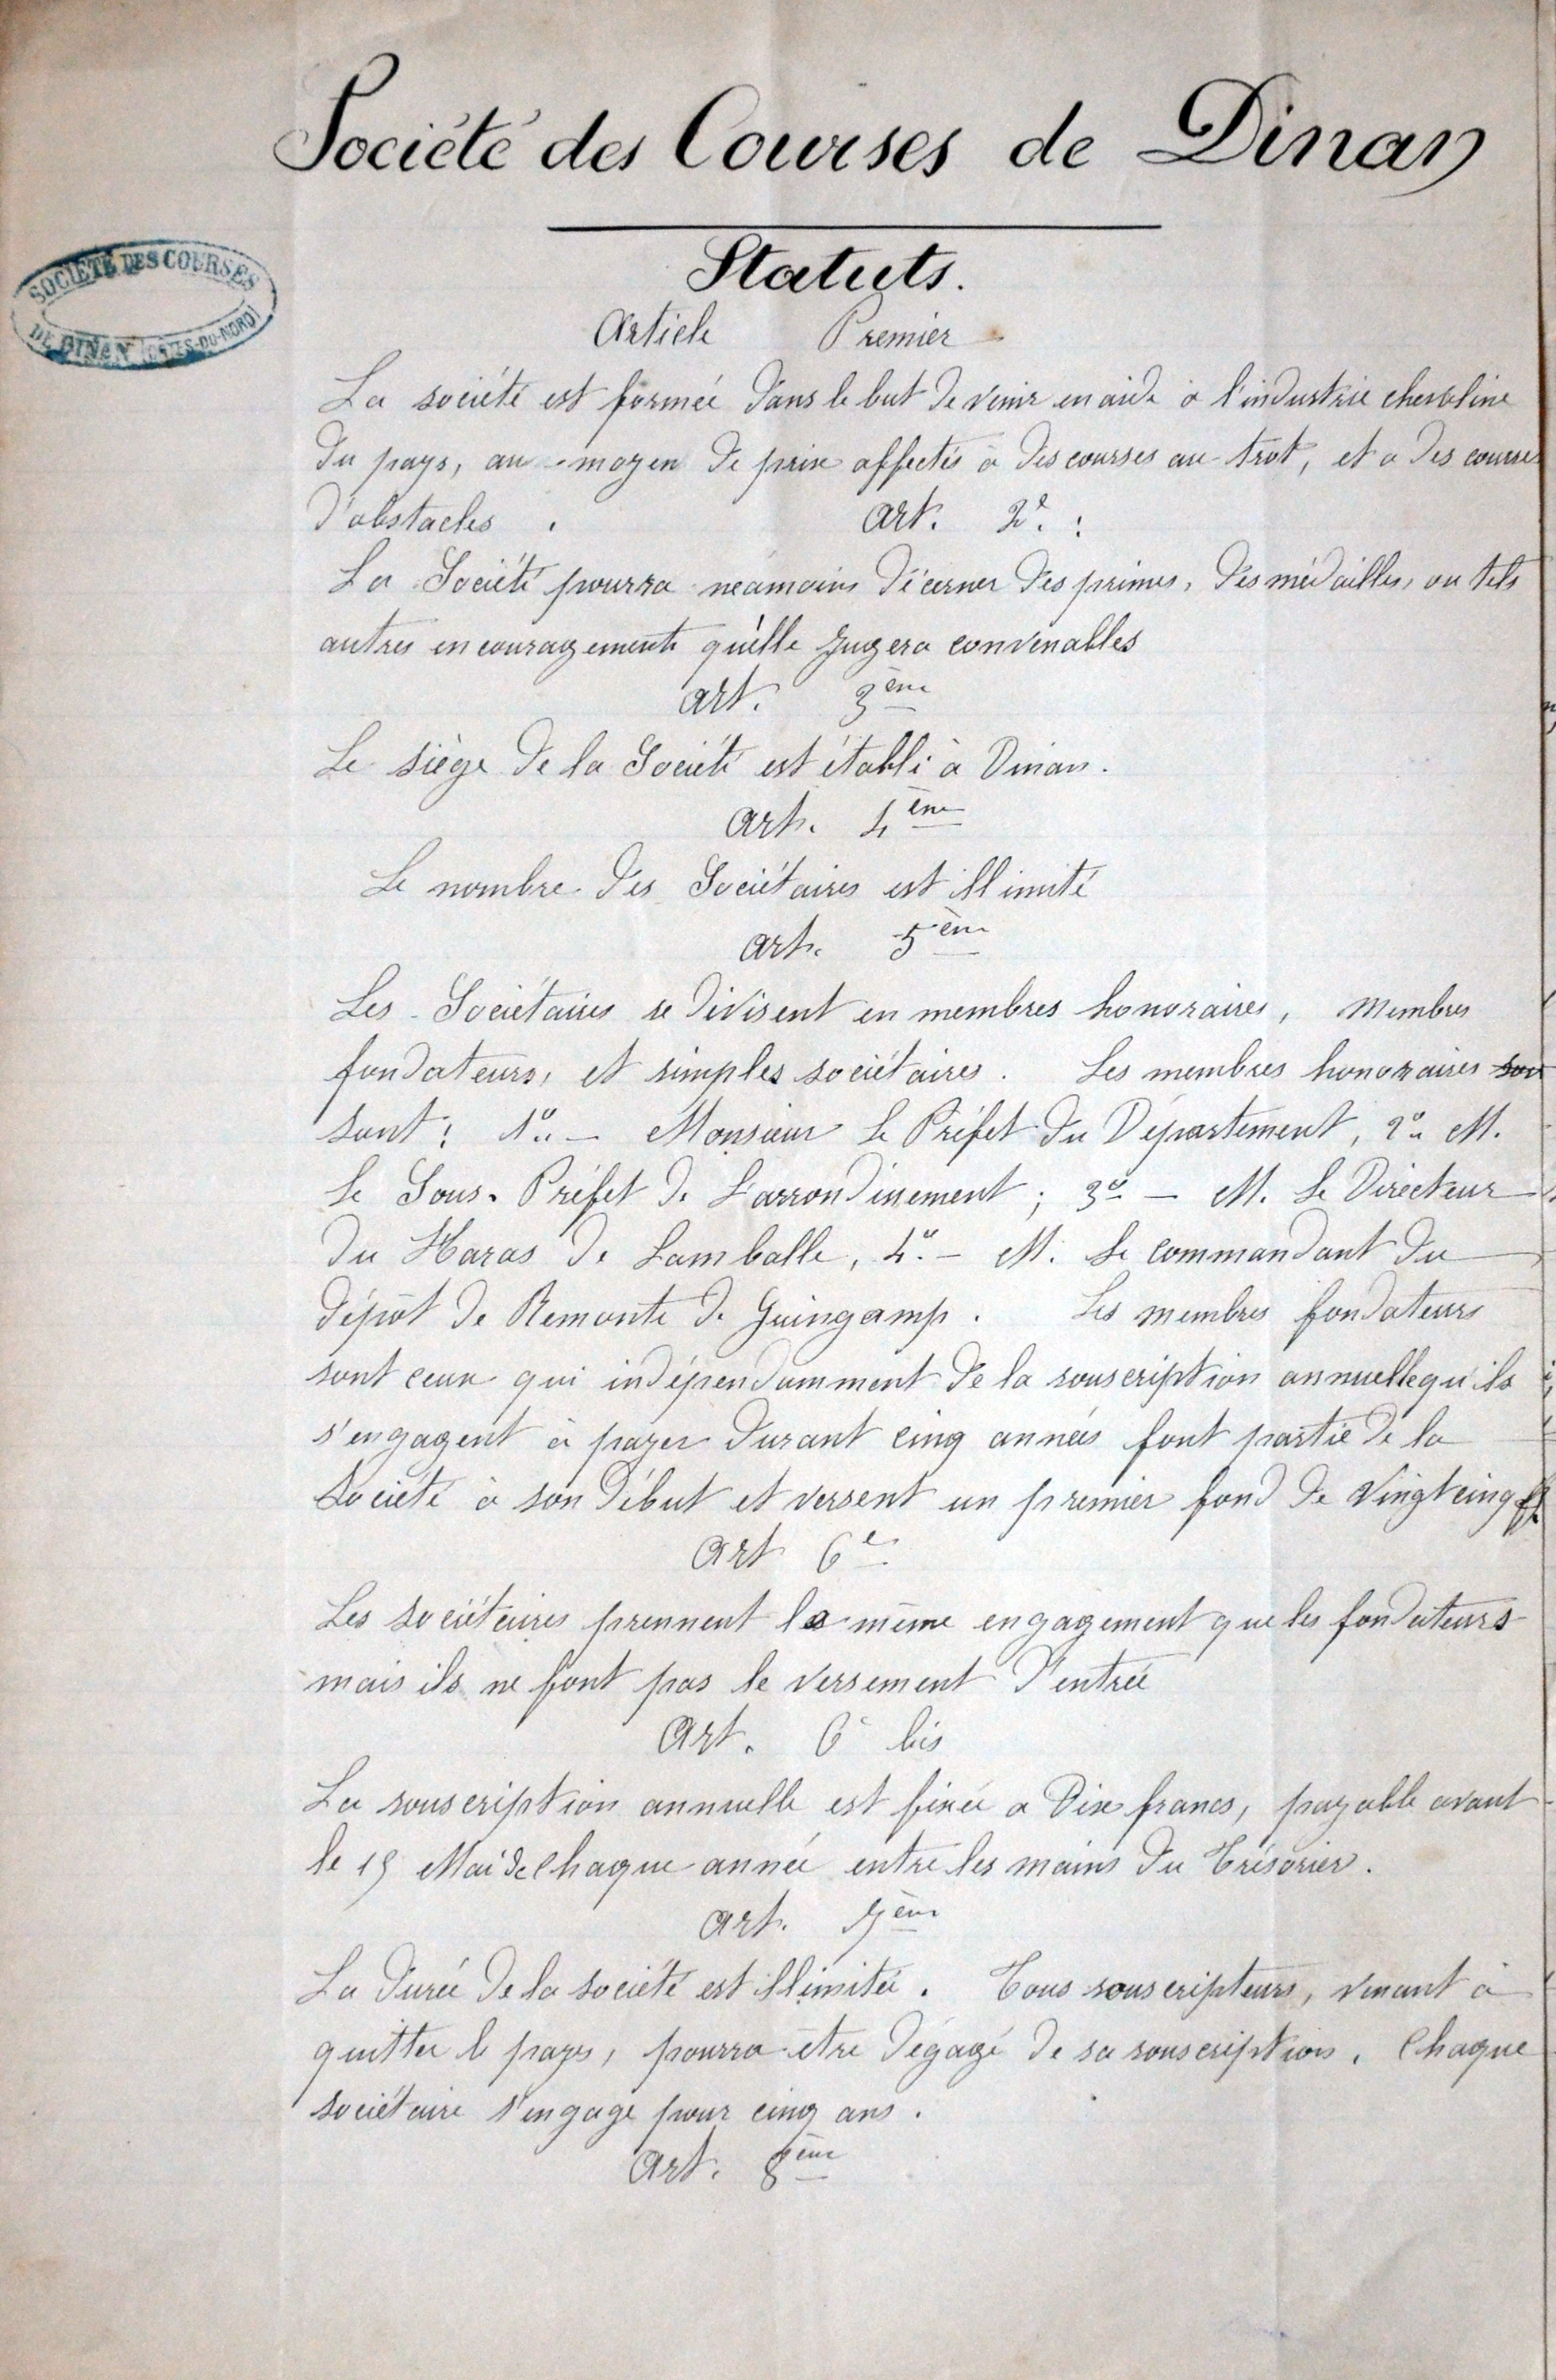 Société des Courses de Dinan
SOCIÉTÉ DES COURSES
DE DINAN (CÔTES-DU-NORD)
Statuts.
Article Premier
La société est formée dans le but de venir en aide à l'industrie chevaline
du pays, au moyen de prix affectés à des courses au trot, et a des courses
d'obstacles . Art. 2e. :
La Société pourra neamoins décerner des primes, des médailles, ou tels
autres encouragements qu'elle jugera convenables
Art. 3ème
Le siège de la Société est établi à Dinan.
Art. 4ème
Le nombre des Sociétaires est illimité
Art. 5ème
Les Sociétaires se divisent en membres honoraires, Membres
fondateurs, et simples sociétaires. Les membres honoraires
sont : 1o. - Monsieur Le Préfet du Département, 2o. M.
le Sous-Préfet de L'arrondissement ; 3o - M. Le Directeur
du Haras de Lamballe, 4o. - M. Le commandant du
dépôt de Remonte de Guingamp. Les membres fondateurs
sont ceux qui indépendamment de la souscription annuelle qu'ils
s'engagent à payer durant cinq années font partie de la
Société à son début et versent un premier fond de Vingt cinq f
Art 6e
Les sociétaires prennent le même engagement que les fondateurs
mais ils ne font pas le versement d'entrée
Art. 6e bis
La souscription annuelle est fixée a Dix francs, payable avant
le 15 Mai de Chaque année entre les mains du Trésorier.
Art. 7ème
La durée de la société est illimitée. Tous souscripteurs, venant à
quitter le pays, pourra être dégagé de sa souscription. Chaque
sociétaire s'engage pour cinq ans.
Art. 8ème